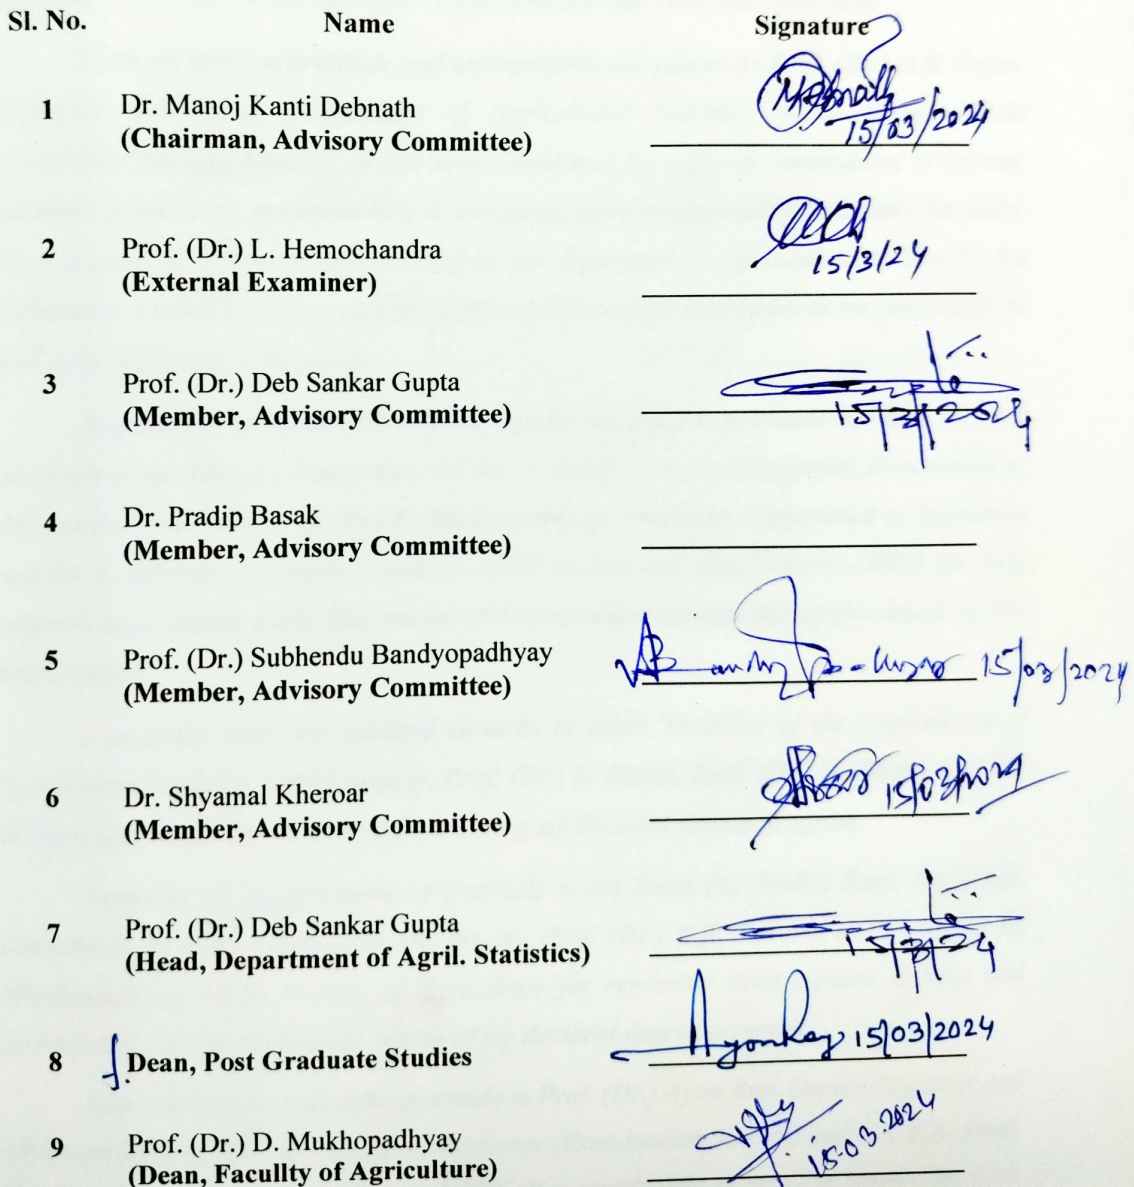 Sl. No. Name Signature
1 Dr. Manoj Kanti Debnath
(Chairman, Advisory Committee)
15/03/2024
2 Prof. (Dr.) L. Hemochandra
(External Examiner)
15/3/24
3 Prof. (Dr.) Deb Sankar Gupta
(Member, Advisory Committee)
15/3/2024
4 Dr. Pradip Basak
(Member, Advisory Committee)
5 Prof. (Dr.) Subhendu Bandyopadhyay
(Member, Advisory Committee)
15/03/2024
6 Dr. Shyamal Kheroar
(Member, Advisory Committee)
15/03/2024
7 Prof. (Dr.) Deb Sankar Gupta
(Head, Department of Agril. Statistics)
15/3/24
8 Dean, Post Graduate Studies
15/03/2024
9 Prof. (Dr.) D. Mukhopadhyay
(Dean, Facullty of Agriculture)
15.03.2024